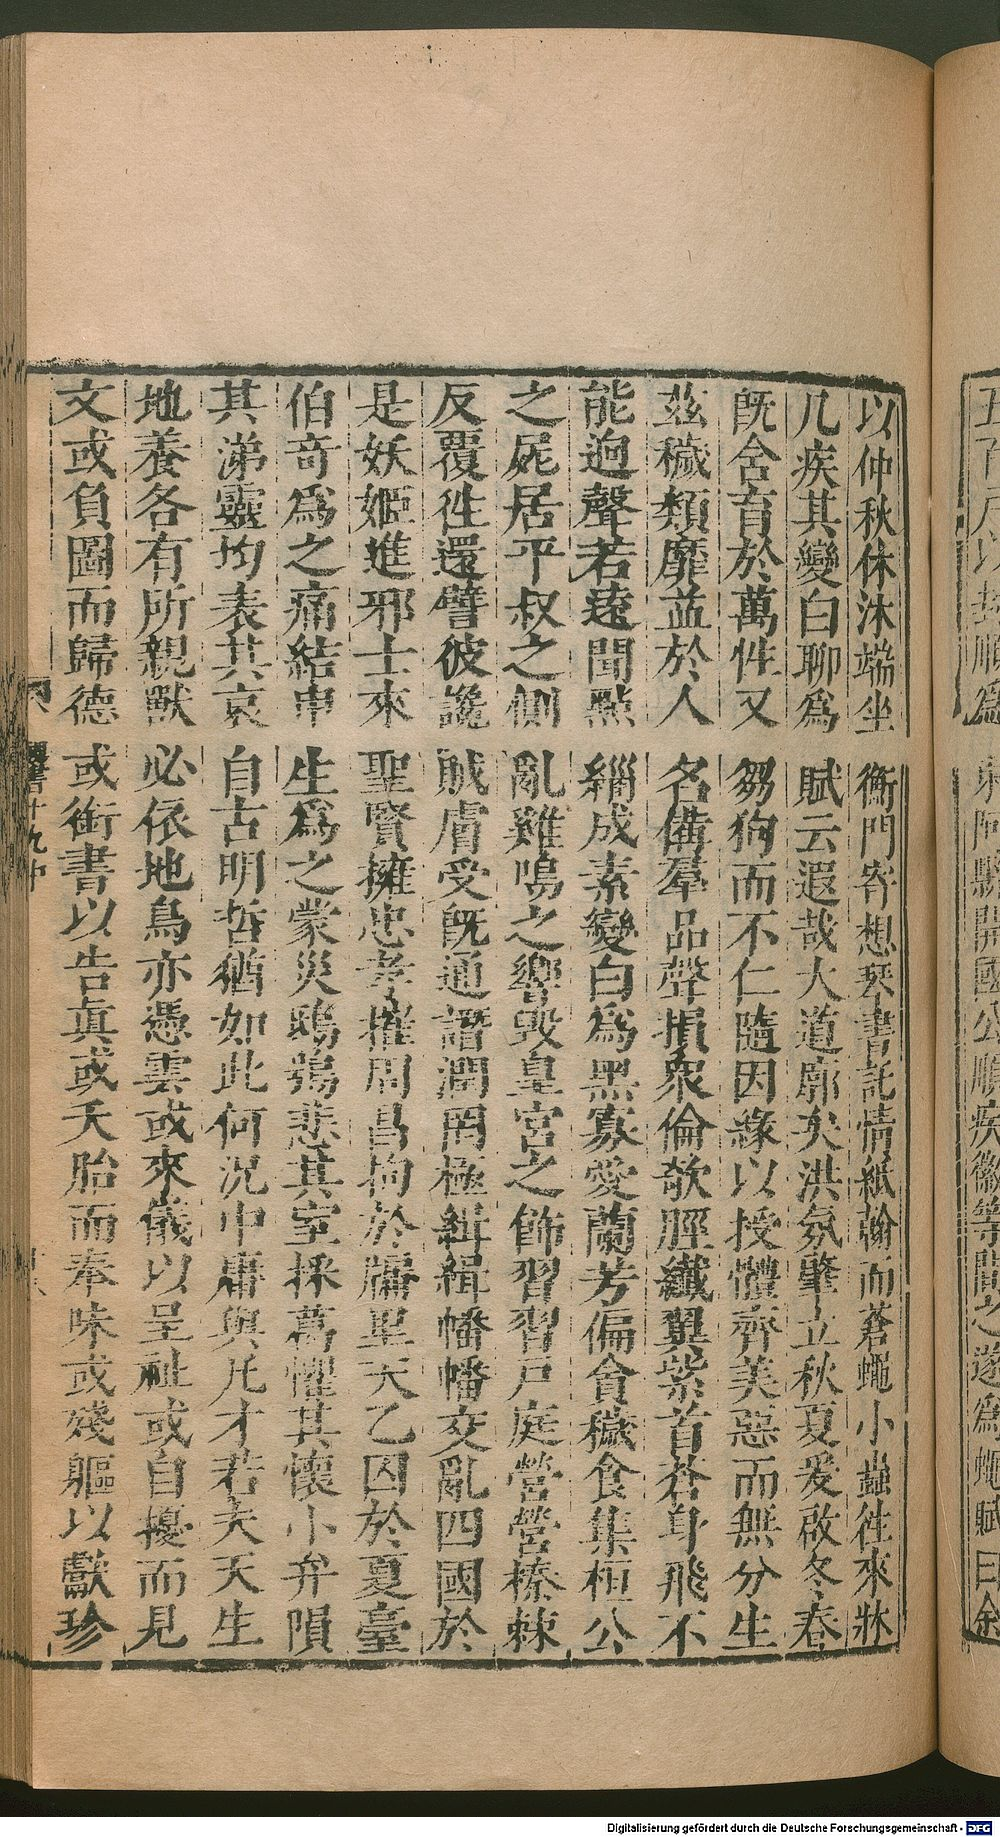 以仲秋休沐端坐衡門寄想琴書託情紙翰而蒼蠅小蟲徃來牀
几疾其變白聊爲賦云遐哉大道廓矣洪氛肇立秋夏爰啟冬春
旣含育於萬性又芻狗而不仁隨因緣以授體齊美惡而無分生
茲穢類靡益於人名備羣品聲損衆倫欹脛纖翼紫首蒼身飛不
能迥聲若遠聞點緇成素變白爲黑寡愛蘭芳偏貪穢食集桓公
之屍居平叔之側亂雞鳴之響毀皇宮之飾習習戶庭營營榛棘
反覆徃還譬彼讒賊膚受旣通譖潤罔極緝緝幡幡交亂四國於
是妖姬進邪士來聖賢擁忠孝摧周昌拘於牖里天乙囚於夏臺
伯奇爲之痛結申生爲之蒙災鴟鴞悲其室採葛懼其懷小弁隕
其涕靈均表其哀自古明哲猶如此何況中庸與凡才若夫天生
地養各有所親獸必依地鳥亦憑雲或來儀以呈祉或自擾而見
文或負圖而歸德或銜書以告眞或夭胎而奉味或殘軀以獻珍
書十九中
東阿縣開國公順疾徽等閒之遂爲蠅賦曰余
Digitalisierung gefördert durch die Deutsche Forschungsgemeinschaft - DFG